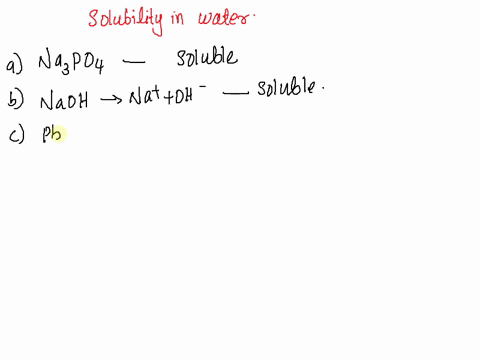 Solubility in water.
a) Na₃PO₄ — Soluble
b) NaOH → Na⁺ + OH⁻ — Soluble.
c) Pb